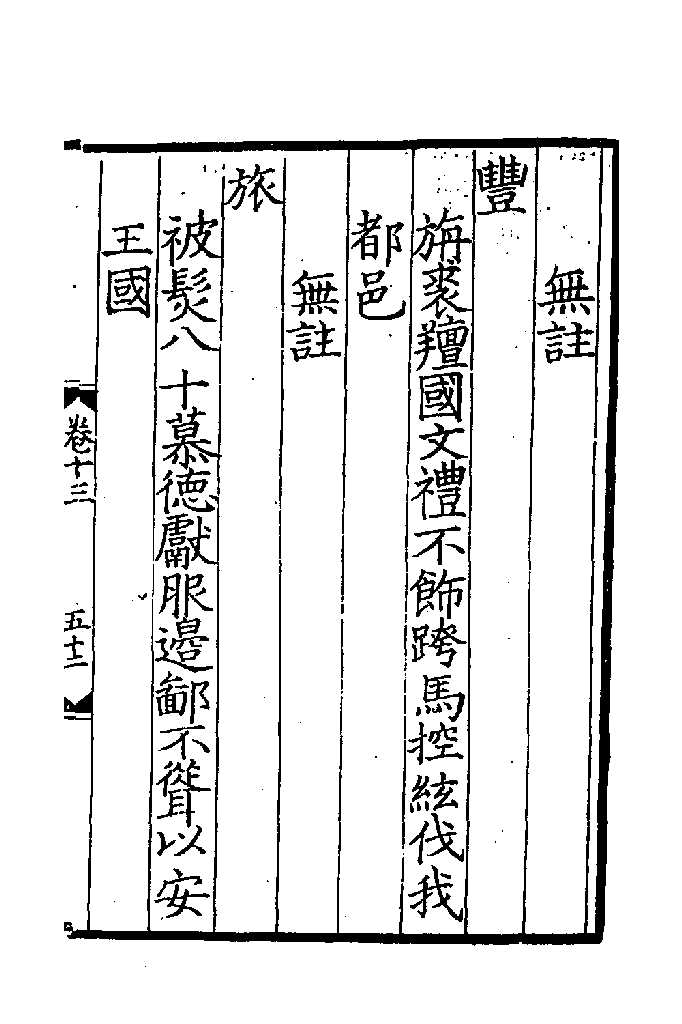 無註
豐
旃裘羶國文禮不飾跨馬控絃伐我
都邑
無註
旅
被髮八十慕德獻服邊鄙不聳以安
王國
卷十三
五十二